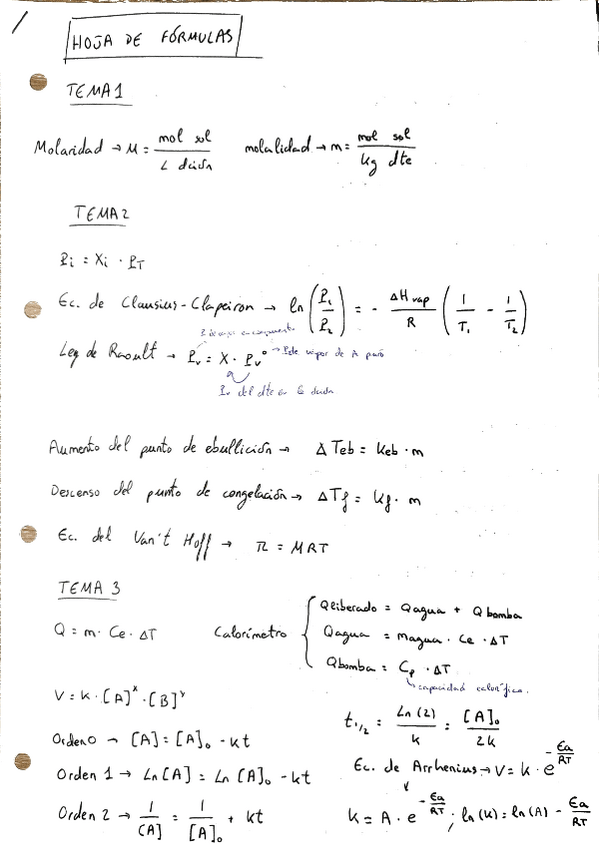 HOJA DE FÓRMULAS
TEMA 1
Molaridad → M = mol sol / L dción molalidad → m = mol sol / kg dte
TEMA 2
Pi = Xi · PT
Ec. de Clausius-Clapeiron → ln (P1 / P2) = - ΔHvap / R (1 / T1 - 1 / T2)
Ley de Raoult → Pv = X · Pv° → P de vapor de A puro
Pv del dte en la dción
Aumento del punto de ebullición → ΔTeb = Keb · m
Descenso del punto de congelación → ΔTf = Kf · m
Ec. del Van't Hoff → π = MRT
TEMA 3
Q = m · Ce · ΔT
Calorímetro { Qliberado = Qagua + Qbomba
Qagua = magua · Ce · ΔT
Qbomba = Cp · ΔT
→ capacidad calorífica
V = K · [A]^x · [B]^y
t1/2 = Ln(2) / K = [A]o / 2K
Orden 0 → [A] = [A]o - kt
Ec. de Arrhenius → V = K · e^(-Ea/RT)
Orden 1 → Ln[A] = Ln[A]o - kt
K = A · e^(-Ea/RT) ; ln(K) = ln(A) - Ea/RT
Orden 2 → 1 / [A] = 1 / [A]o + kt